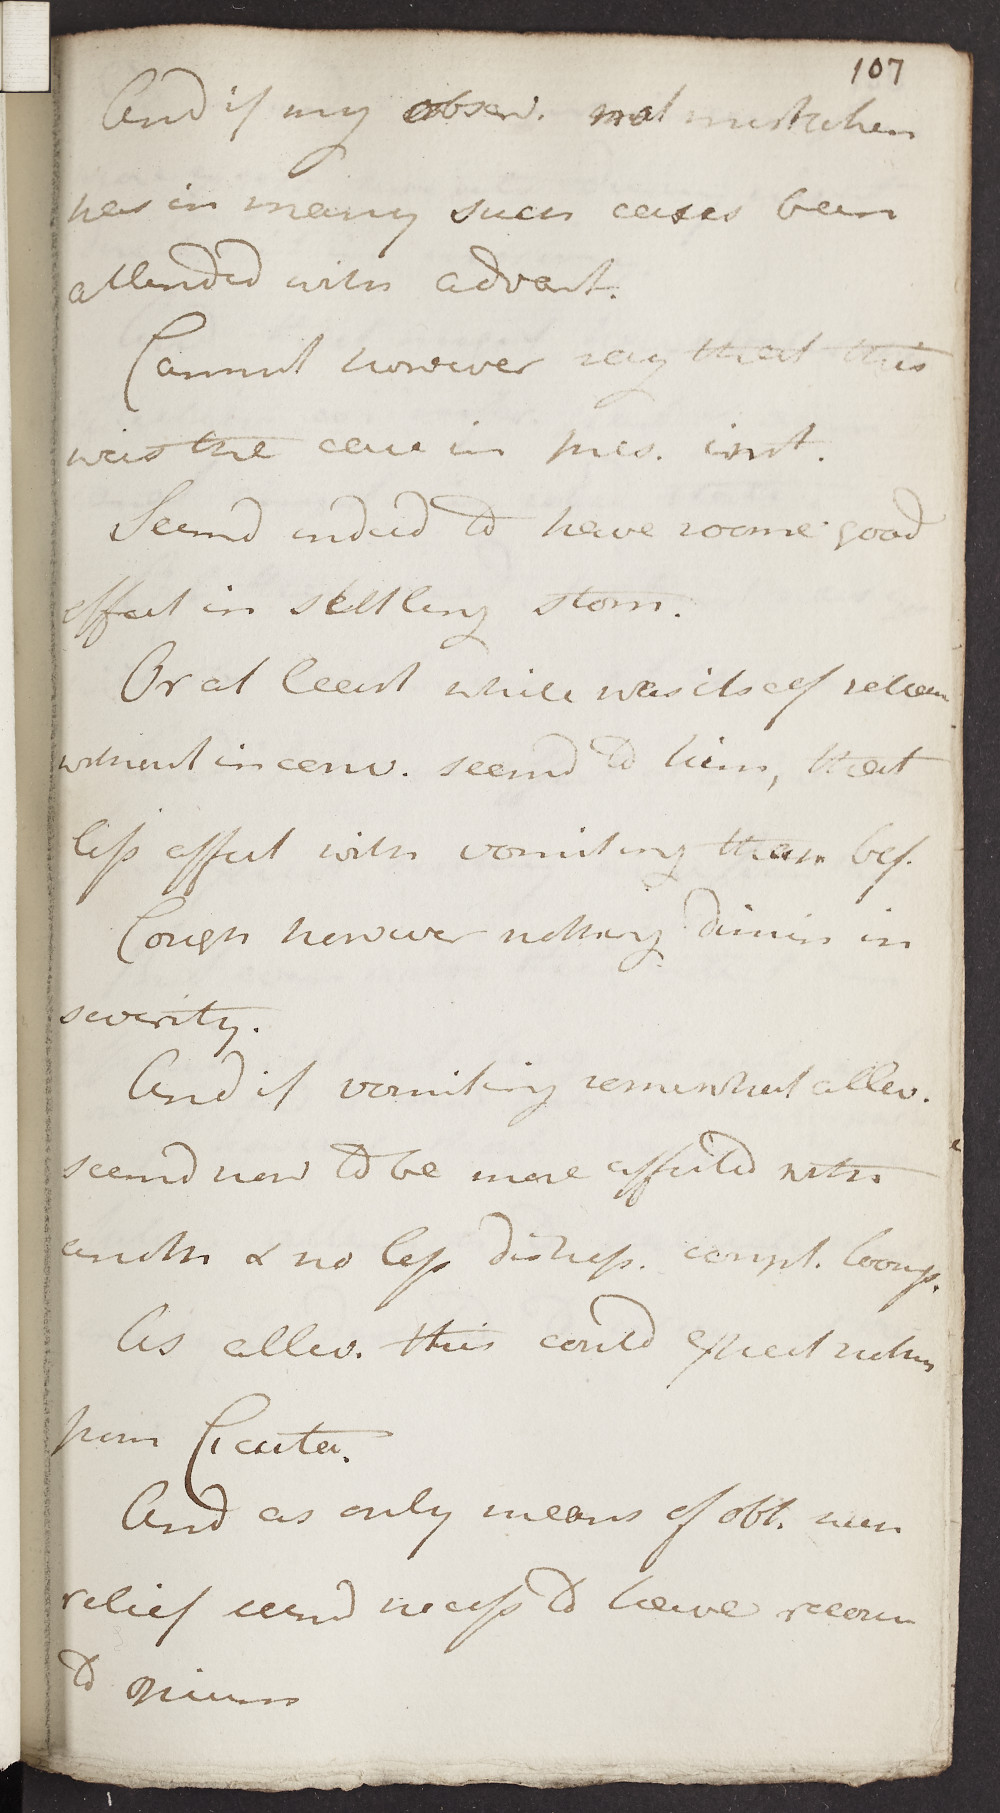 107
And if my observ. not mistaken
has in many such cases been
attended with advant.
Cannot however say that this
was the case in pres. inst.
Seemd indeed to have some good
effect in settling stom.
Or at least while was itself retain
without inconv. seemd to him, that
less affect with vomiting than bef.
Cough however nothing dimin in
severity.
And if vomiting somewhat allev.
seemd now to be more affected with
anoth & no less distress. compl.
As allev. this could expect nothin
from Cicuta.
And as only means of obt. even
relief seemd necess to have recour
to opium